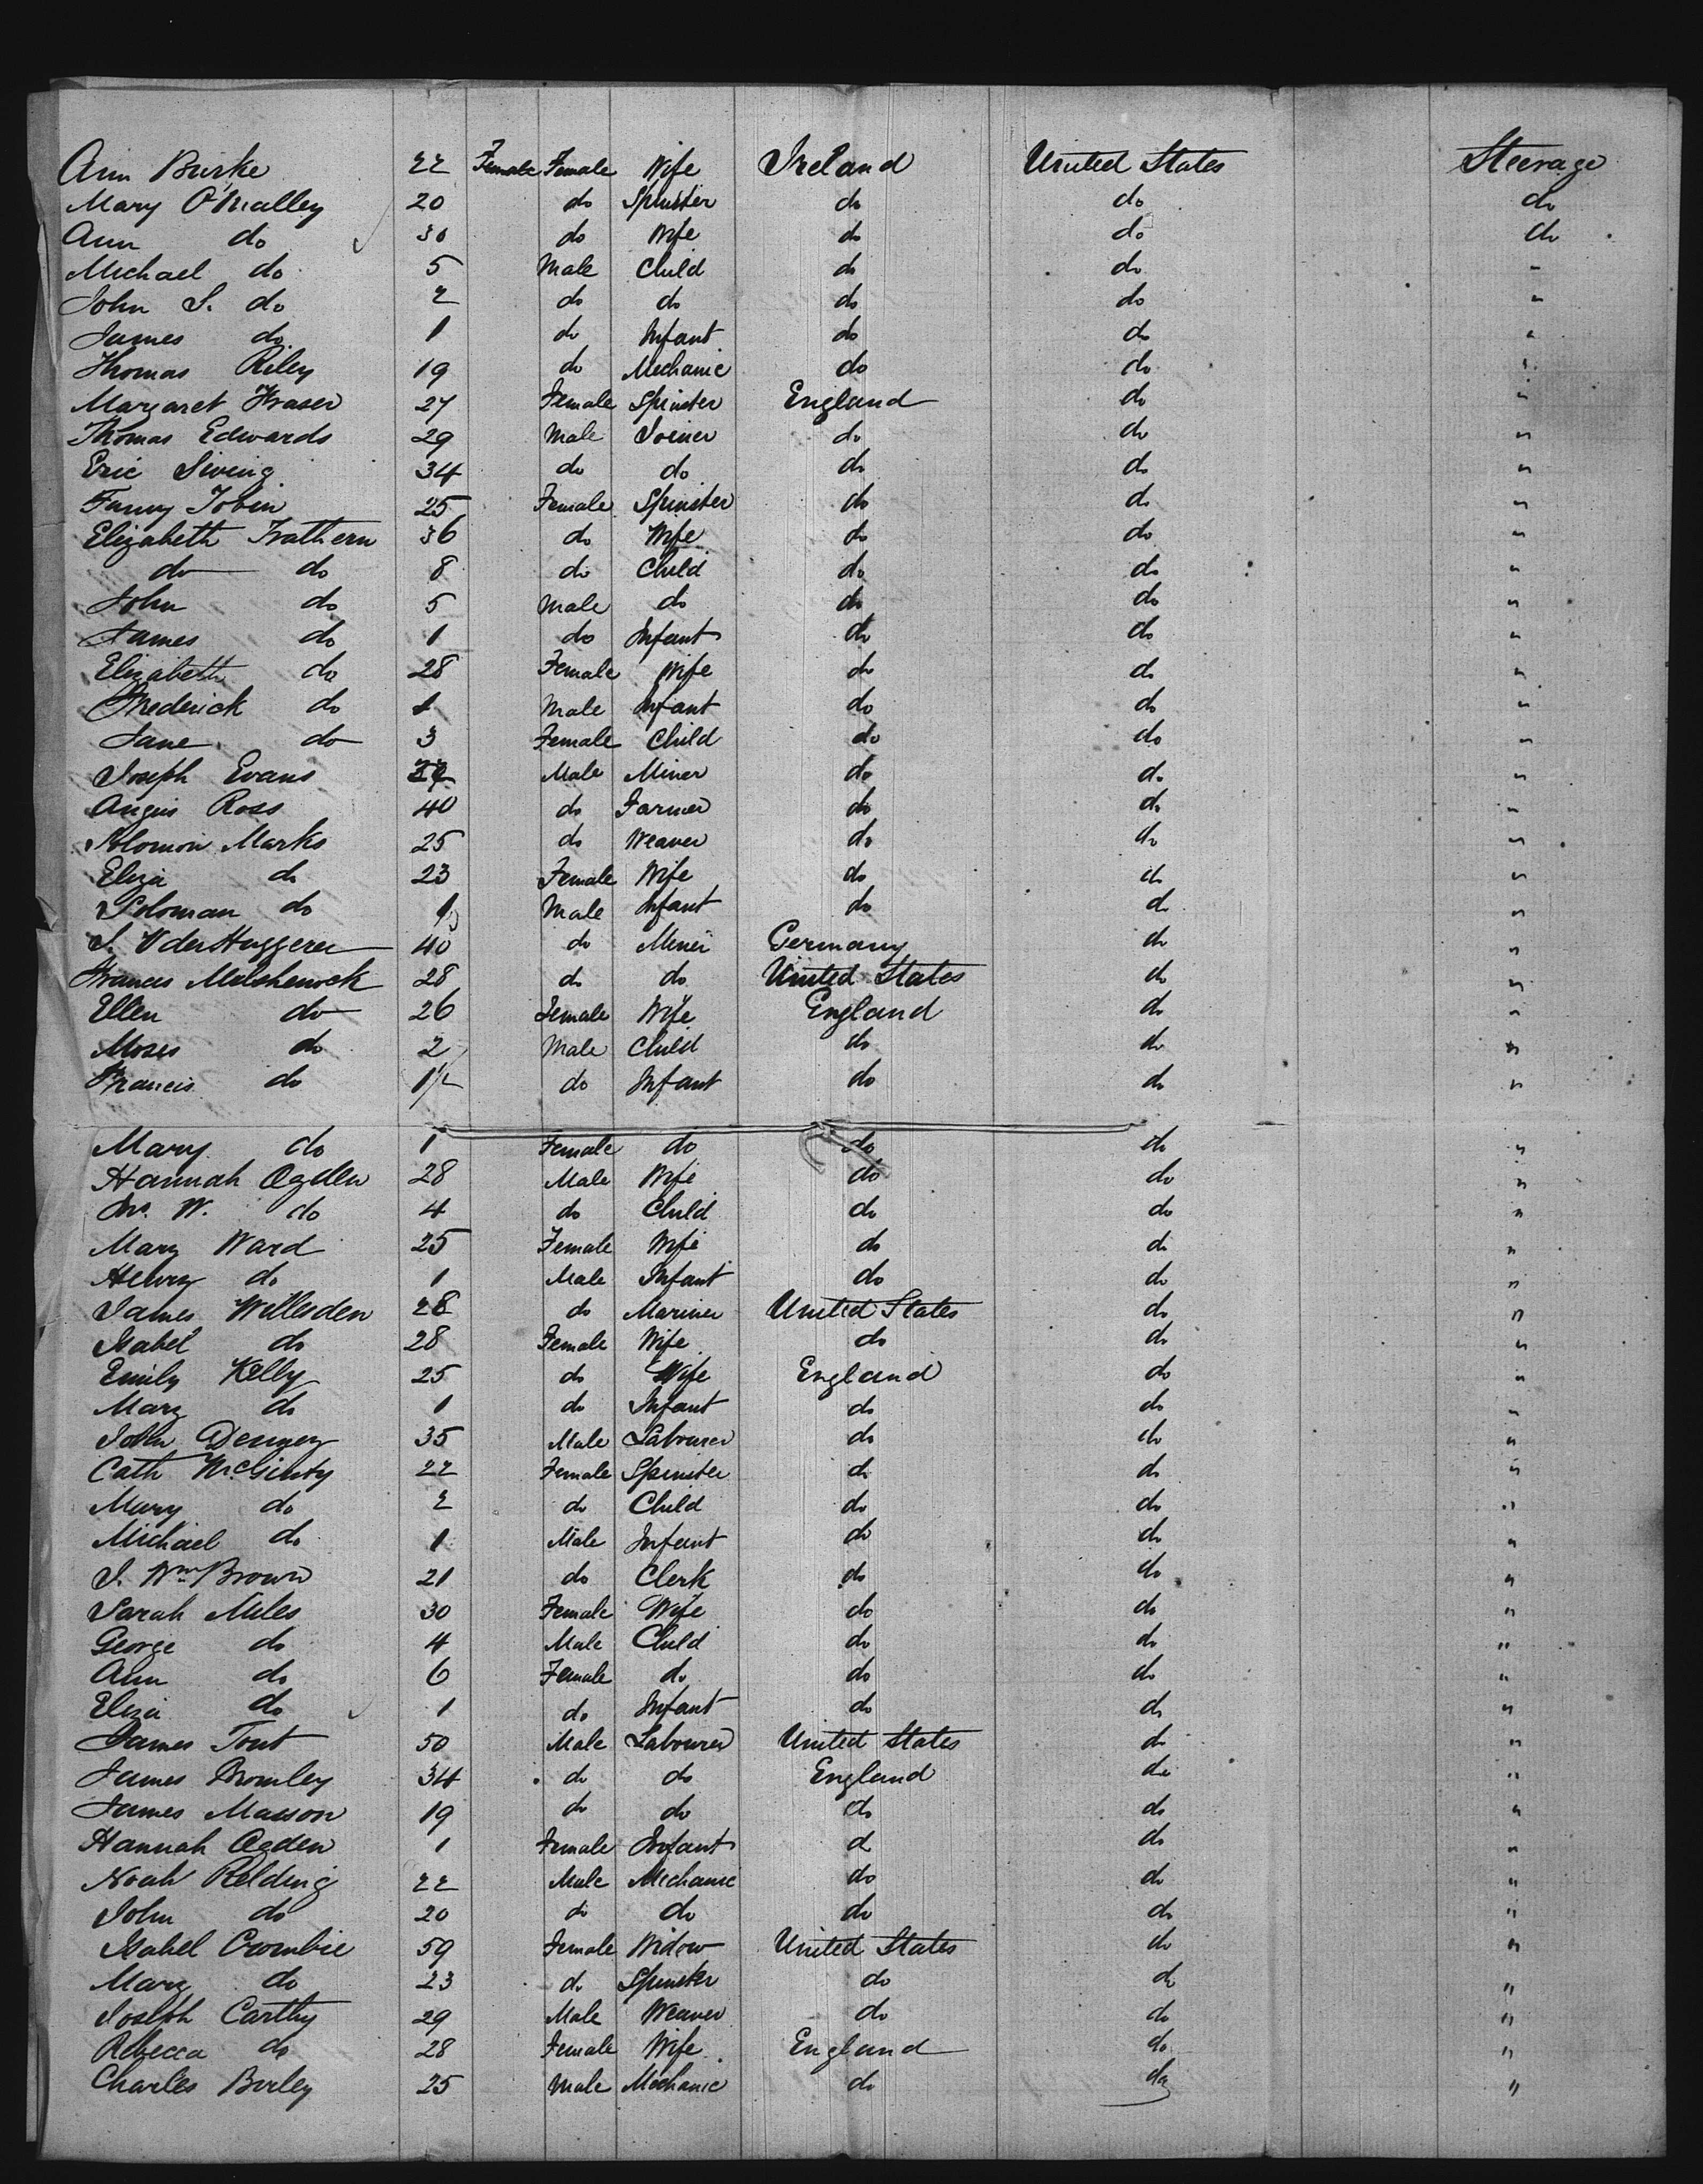 Ann Burke 22 Female Female Wife Ireland United States Steerage
Mary O'Malley 20 do Spinster do do do
Ann do 30 do Wife do do do
Michael do 5 Male Child do do "
John S. do 2 do do do do "
James do 1 do Infant do do "
Thomas Riley 19 do Mechanic do do "
Margaret Fraser 27 Female Spinster England do "
Thomas Edwards 29 Male Joiner do do "
Eric 34 do do do do "
Fanny Tobin 25 Female Spinster do do "
Elizabeth Trathern 36 do Wife do do "
do do 8 do Child do do "
John do 5 Male do do do "
James do 1 do Infant do do "
Elizabeth do 28 Female Wife do do "
Frederick do 1 Male Infant do do "
Jane do 3 Female Child do do "
Joseph Evans Male Miner do do "
Angus Ross 40 do Farmer do do "
Solomon Marks 25 do Weaver do do "
Eliza do 23 Female Wife do do "
Soloman do 1 Male Infant do do "
40 do Miner Germany do "
Francis 28 do do United States do "
Ellen do 26 Female Wife England do "
Moses do 2 Male Child do do "
Francis do 1/2 do Infant do do "
Mary do 1 Female do do do "
Hannah Ogden 28 Male Wife do do "
W. do 4 do Child do do "
Mary Ward 25 Female Wife do do "
Henry do 1 Male Infant do do "
James Willesden 28 do Mariner United States do "
Isabel do 28 Female Wife do do "
Emily Kelly 25 do Wife England do "
Mary do 1 do Infant do do "
John 35 Male Labourer do do "
Cath McGinty 22 Female Spinster do do "
Mary do 2 do Child do do "
Michael do 1 Male Infant do do "
J. Wm Brown 21 do Clerk do do "
Sarah Miles 30 Female Wife do do "
George do 4 Male Child do do "
Ann do 6 Female do do do "
Eliza do 1 do Infant do do "
James Tout 50 Male Labourer United States do "
James Bromley 34 do do England do "
James Masson 19 do do do do "
Hannah Ogden 1 Female Infant d do "
Noah Relding 22 Male Mechanic do do "
John do 20 do do do do "
Isabel Crombie 59 Female Widow United States do "
Mary do 23 do Spinster do do "
Joseph Carthy 29 Male Weaver do do "
Rebecca do 28 Female Wife England do "
Charles Birley 25 Male Mechanic do do "